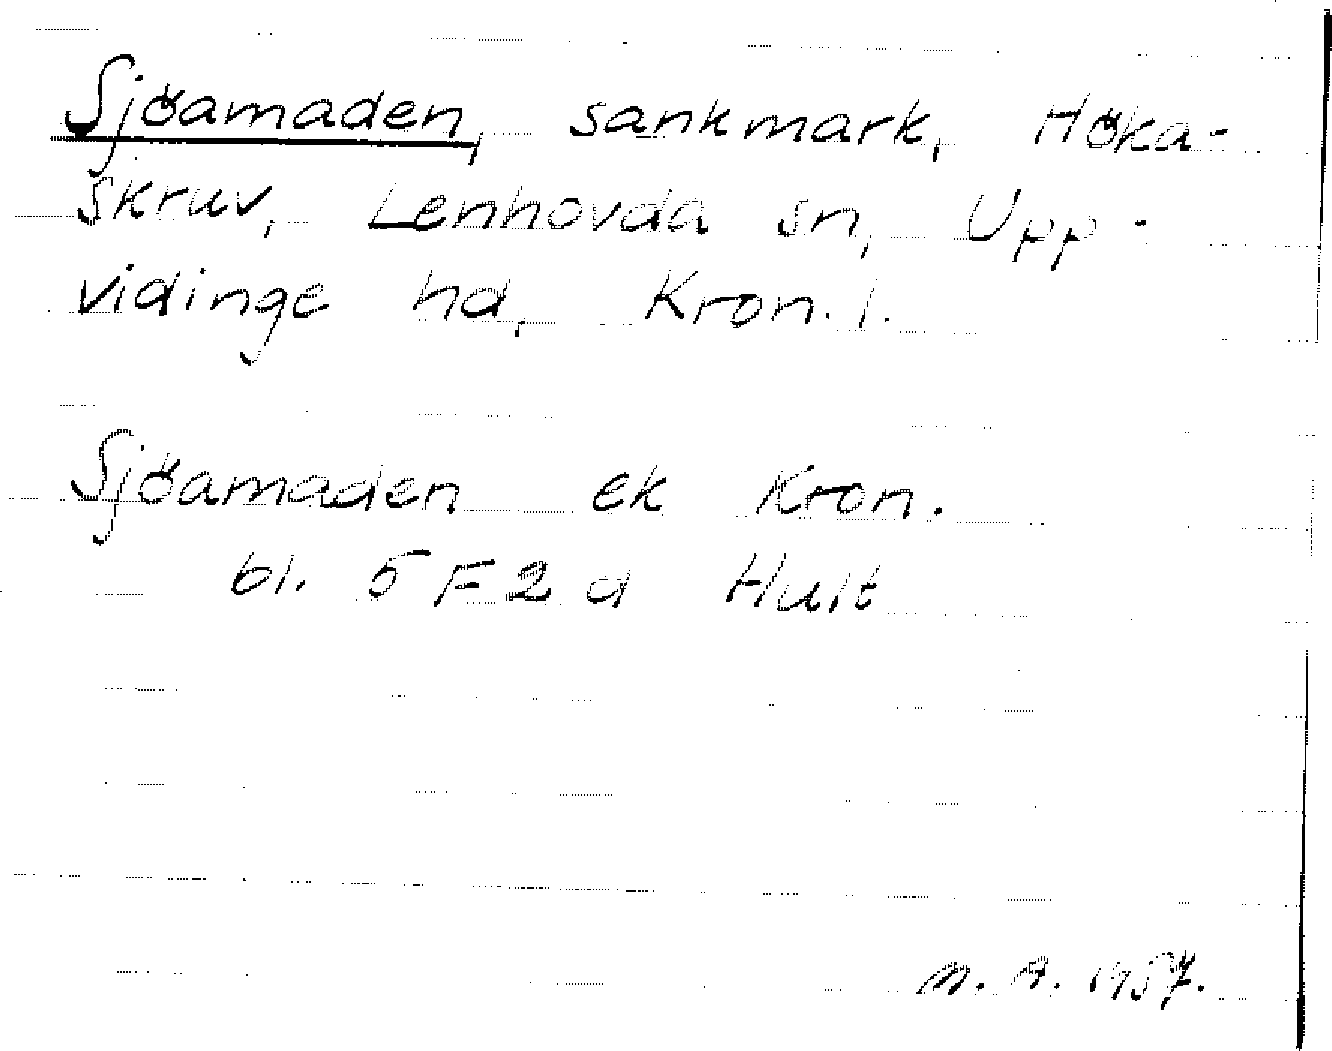 Sjöamaden, sankmark, Höka-
skruv, Lenhovda sn, Upp-
vidinge hd, Kron. l.
Sjöamaden ek Kron.
bl. 5 F 2 d Hult
N. A. 1957.